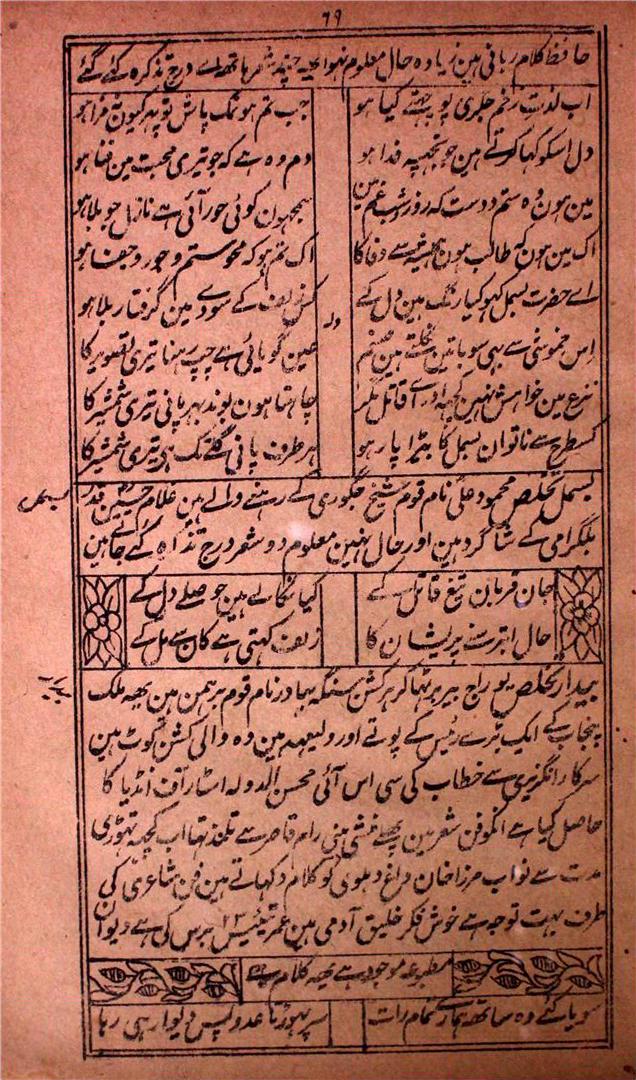 ٦٩
حافظ کلام ربانی ہین زیادہ حال معلوم نہوا یہہ چند شعر ہاتھہ اے درج تذکرہ کئے گئے
اب لذت زخم جگری پوچہتے کیا ہو جب تم ہو نمک پاش تو پہر کیون نہ مزا ہو
دل اسکو کہا کرتے ہین جو تجہپہ فدا ہو دم وہ ہے کہ جو تیری محبت مین فنا ہو
مین ہون وہ ستم دوست کہ روز شب غم مین سمجہون کوئی حور آئی ہے نازل جو بلا ہو
اک مین ہون کہ طالب ہون ہمیشہ سے وفا کا اک تم ہو کہ محو ستم و جور و جفا ہو
اے حضرت بسمل کہو کیا رنگ ہین دل کے کس زلف کے سودے مین گرفتار بلا ہو
ولہ
اس خموشی سے بہی سو باتین نکلتے ہین صنم عین گویائی ہے چپ رہنا تیری تصویر کا
نزع مین خواہش نہین کچہہ اور اے قاتل مگر چاہتا ہون بوند بہر پانی تیری شمشیر کا
کسطرح سے ناتوان بسمل کا بیڑا پار ہو ہر طرف پانی گلے تک ہی تیری شمشیر کا
بسمل
بسمل تخلص محمود علی نام قوم شیخ جگوری کے رہنے والے ہین غلام حسنین قدر
بلگرامی کے شاگرد ہین اور حال نہین معلوم دو شعر درج تذکرہ کئے جاتے ہین
جان قربان تیغ قاتل کے کیا نکالے ہین حوصلے دل کے
حال ابتر سنے پریشان کا زلف کہتی ہے کان سے مل کے
بیدار
بیدار تخلص یوراج بیربر ٹہاکر ہرکشن سنگہ بہادر نام قوم برہمن ہین یہہ ملک
پنجاب کے ایک بڑے رئیس کے پوتے اور ولیعہد ہین وہ والی کشن کوٹ ہین
سرکار انگریزی سے خطاب کی سی اس آئی محسن الدولہ اسٹار آف انڈیا کا
حاصل کیا ہے انکو فن شعر مین پہلے منشی بینی رام قاصر سے تلمذ تہا اب کچہہ تہوڑی
مدت سے نواب مرزا خان داغ دہلوی کو کلام دکہاتے ہین فن شاعری کی
طرف بہت توجہ ہے خوش فکر خلیق آدمی ہین عمر تیئیس ٢٣ برس کی ہے دیوان
مطبوعہ موجود ہے یہہ کلام ہے
سویا کئے وہ ساتھ ہمارے تمام رات سر پہوڑتا عدو پس دیوار ہی رہا